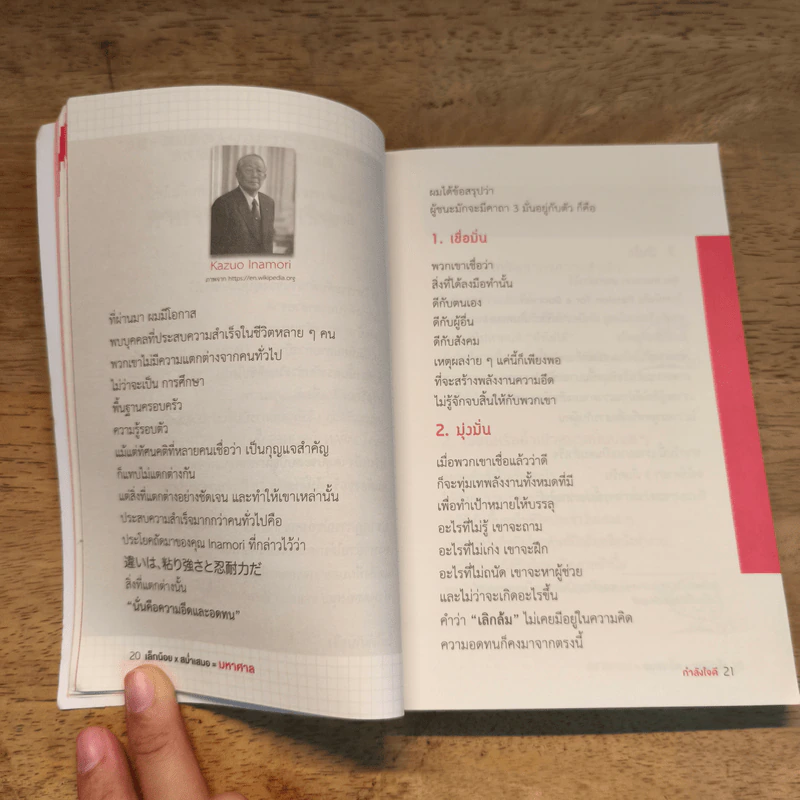 Kazuo Inamori
ภาพจาก https://en.wikipedia.org
ที่ผ่านมา ผมมีโอกาส
พบบุคคลที่ประสบความสำเร็จในชีวิตหลาย ๆ คน
พวกเขาไม่มีความแตกต่างจากคนทั่วไป
ไม่ว่าจะเป็น การศึกษา
พื้นฐานครอบครัว
ความรู้รอบตัว
แม้แต่ทัศนคติที่หลายคนเชื่อว่า เป็นกุญแจสำคัญ
ก็แทบไม่แตกต่างกัน
แต่สิ่งที่แตกต่างอย่างชัดเจน และทำให้เขาเหล่านั้น
ประสบความสำเร็จมากกว่าคนทั่วไปคือ
ประโยคถัดมาของคุณ Inamori ที่กล่าวไว้ว่า
違いは、粘り強さと忍耐力だ
สิ่งที่แตกต่างนั้น
“นั่นคือความอึดและอดทน”
20 เล็กน้อย x สม่ำเสมอ = มหาศาล
ผมได้ข้อสรุปว่า
ผู้ชนะมักจะมีคาถา 3 มั่นอยู่กับตัว ก็คือ
1. เชื่อมั่น
พวกเขาเชื่อว่า
สิ่งที่ได้ลงมือทำนั้น
ดีกับตนเอง
ดีกับผู้อื่น
ดีกับสังคม
เหตุผลง่าย ๆ แค่นี้ก็เพียงพอ
ที่จะสร้างพลังงานความอึด
ไม่รู้จักจบสิ้นให้กับพวกเขา
2. มุ่งมั่น
เมื่อพวกเขาเชื่อแล้วว่าดี
ก็จะทุ่มเทพลังงานทั้งหมดที่มี
เพื่อทำเป้าหมายให้บรรลุ
อะไรที่ไม่รู้ เขาจะถาม
อะไรที่ไม่เก่ง เขาจะฝึก
อะไรที่ไม่ถนัด เขาจะหาผู้ช่วย
และไม่ว่าจะเกิดอะไรขึ้น
คำว่า “เลิกล้ม” ไม่เคยมีอยู่ในความคิด
ความอดทนก็คงมาจากตรงนี้
กำลังใจดี 21